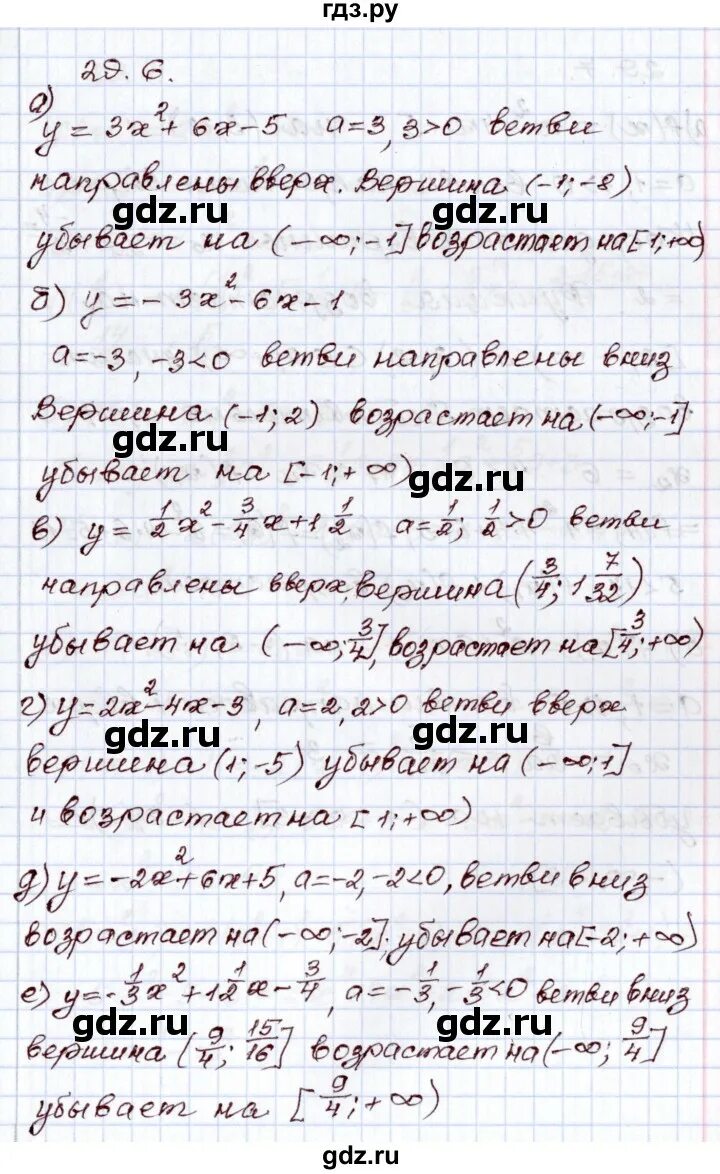 гдз.ру
29.6.
а)
y = 3x² + 6x - 5 a = 3, 3 > 0 ветви
направлены вверх. Вершина (-1; -8)
gdz.ru gdz.ru
убывает на (-∞; -1] возрастает на [-1; +∞)
б) y = -3x² - 6x - 1
a = -3, -3 < 0 ветви направлены вниз
Вершина (-1; 2) возрастает на (-∞; -1]
gdz.ru
убывает на [-1; +∞)
gdz.ru
в) y = 1/2 x² - 3/4 x + 1 1/2 a = 1/2; 1/2 > 0 ветви
направлены вверх, вершина (3/4; 1 7/32)
убывает на (-∞; 3/4], возрастает на [3/4; +∞)
г) y = 2x² - 4x - 3, a = 2, 2 > 0 ветви вверх
gdz.ru gdz.ru
вершина (1; -5) убывает на (-∞; 1]
и возрастает на [1; +∞)
д) y = -2x² + 6x + 5, a = -2, -2 < 0, ветви вниз
возрастает на (-∞; -2]. убывает на [-2; +∞)
е) y = -1/3 x² + 1 1/2 x - 3/4, a = -1/3, -1/3 < 0 ветви вниз
gdz.ru gdz.ru
вершина (9/4; 15/16] возрастает на (-∞; 9/4]
убывает на [9/4; +∞)
gdz.ru